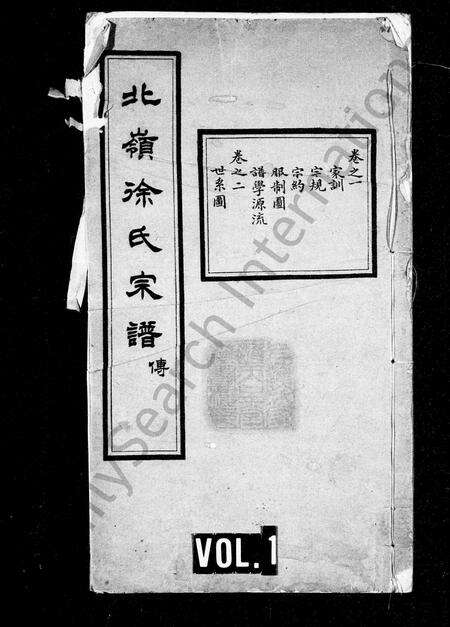 北嶺徐氏宗譜
傳
卷之一
家訓
宗規
宗約
服制圖
譜學源流
卷之二
世系圖
VOL.1
FamilySearch International